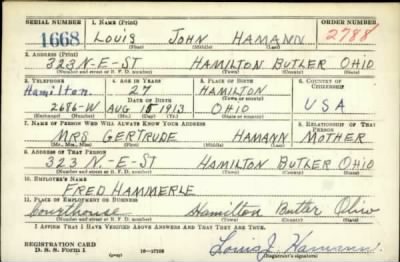 SERIAL NUMBER 1. NAME (Print) ORDER NUMBER
1668 LOUIS JOHN HAMANN 2788
(First) (Middle) (Last)
2. ADDRESS (Print)
323 N-E-ST HAMILTON BUTLER OHIO
(Number and street or R. F. D. number) (Town) (County) (State)
3. TELEPHONE 4. AGE IN YEARS 5. PLACE OF BIRTH 6. COUNTRY OF CITIZENSHIP
Hamilton. 27 HAMILTON
DATE OF BIRTH (Town or county)
2686-W AUG 15 1913 OHIO USA
(Exchange) (Number) (Mo.) (Day) (Yr.) (State or country)
7. NAME OF PERSON WHO WILL ALWAYS KNOW YOUR ADDRESS 8. RELATIONSHIP OF THAT PERSON
MRS GERTRUDE HAMANN MOTHER
(Mr., Mrs., Miss) (First) (Middle) (Last)
9. ADDRESS OF THAT PERSON
323 N.-E-ST HAMILTON BUTLER OHIO
(Number and street or R. F. D. number) (Town) (County) (State)
10. EMPLOYER'S NAME
FRED HAMMERLE
11. PLACE OF EMPLOYMENT OR BUSINESS
Courthouse Hamilton Butler Ohio
(Number and street or R. F. D. number) (Town) (County) (State)
I AFFIRM THAT I HAVE VERIFIED ABOVE ANSWERS AND THAT THEY ARE TRUE.
REGISTRATION CARD
D. S. S. Form 1 (over) Louis J. Hamann
(Registrant's signature)